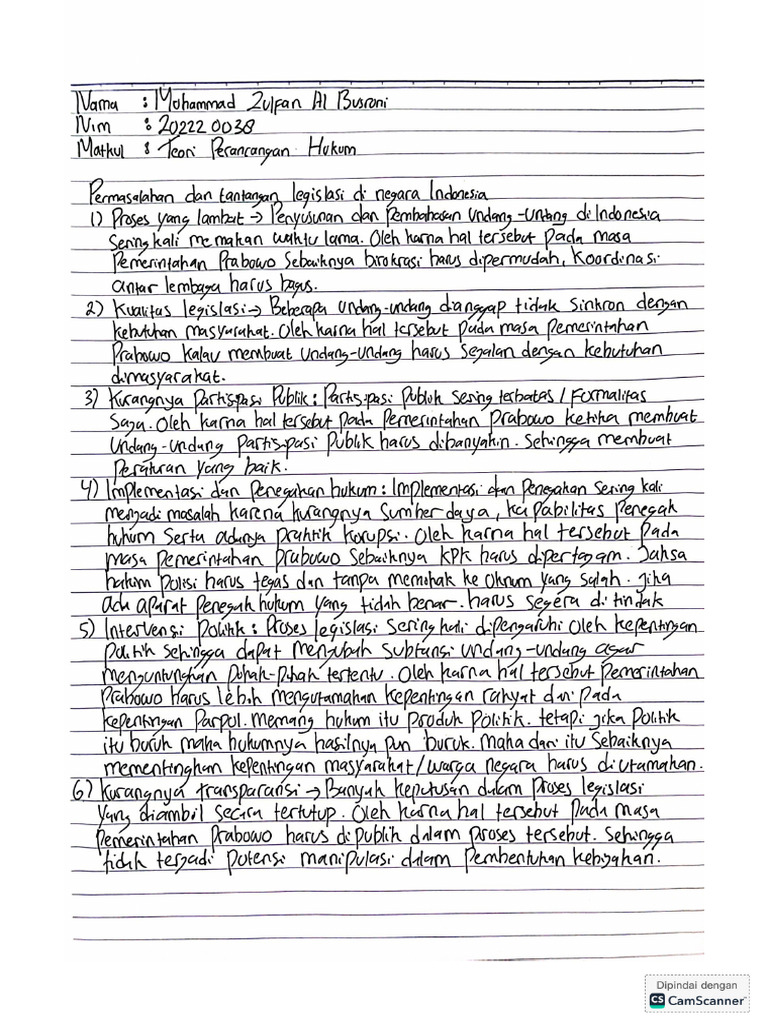 Nama : Mohammad Zulfan Al Busroni
Nim : 20222 0038
Matkul : Teori Perancangan Hukum
Permasalahan dan tantangan legislasi di negara Indonesia
1) Proses yang lambat → Penyusunan dan Pembahasan Undang-Undang di Indonesia
Sering kali memakan waktu lama. Oleh karna hal tersebut pada masa
Pemerintahan Prabowo Sebaiknya birokrasi harus dipermudah, Koordinasi
antar lembaga harus bagus.
2) Kualitas legislasi → Beberapa undang-undang dianggap tidak sinkron dengan
kebutuhan masyarakat. Oleh karna hal tersebut pada masa Pemerintahan
Prabowo kalau membuat Undang-Undang harus sejalan dengan kebutuhan
dimasyarakat.
3) Kurangnya Partisipasi Publik : Partisipasi Publik sering terbatas / Formalitas
Saja. Oleh karna hal tersebut pada Pemerintahan Prabowo ketika membuat
Undang-undang Partisipasi Publik harus dibanyakin. Sehingga membuat
Peraturan yang baik.
4) Implementasi dan Penegakan hukum : Implementasi dan Penegakan Sering kali
menjadi masalah karena kurangnya Sumber daya, kapabilitas Penegak
hukum Serta adanya praktik korupsi. Oleh karna hal tersebut pada
masa Pemerintahan Prabowo Sebaiknya KPK harus dipertajam. Jaksa
hakim Polisi harus tegas dan tanpa memihak ke Oknum yang salah. Jika
ada aparat Penegak hukum yang tidak benar. harus segera di tindak
5) Intervensi Politik : Proses legislasi Sering kali dipengaruhi oleh kepentingan
Politik sehingga dapat mengubah Subtansi undang-undang agar
menguntungkan Pihak-Pihak tertentu. Oleh karna hal tersebut Pemerintahan
Prabowo Harus Lebih mengutamakan kepentingan rakyat dari pada
kepentingan Parpol. Memang hukum itu produk Politik. tetapi jika Politik
itu buruk maka hukumnya hasilnya pun buruk. Maka dari itu Sebaiknya
mementingkan kepentingan masyarakat / warga negara harus di utamakan.
6) Kurangnya transparansi → Banyak keputusan dalam Proses legislasi
yang diambil secara tertutup. Oleh karna hal tersebut Pada masa
Pemerintahan Prabowo harus di publik dalam proses tersebut. Sehingga
tidak terjadi potensi manipulasi dalam Pembentukan kebijakan.
Dipindai dengan
CS CamScanner